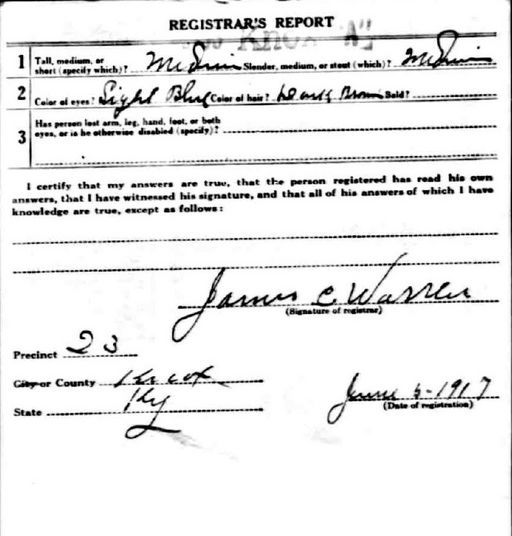 REGISTRAR'S REPORT
1 Tall, medium, or short (specify which)? Medium Slender, medium, or stout (which)? Medium
2 Color of eyes? Light Blue Color of hair? Dark Brown Bald?
3 Has person lost arm, leg, hand, foot, or both
eyes, or is he otherwise disabled (specify)?
I certify that my answers are true, that the person registered has read his own
answers, that I have witnessed his signature, and that all of his answers of which I have
knowledge are true, except as follows:
James C Warren
(Signature of registrar)
Precinct 23
City or County Knox
State Ky
June 5-1917
(Date of registration)